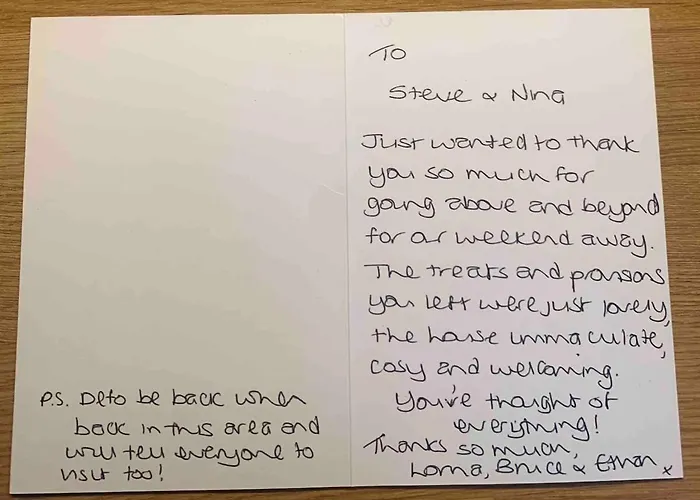 To
Steve & Nina
Just wanted to thank
you so much for
going above and beyond
for our weekend away.
The treats and provisions
you left were just lovely,
the house immaculate,
cosy and welcoming.
You've thought of
everything!
Thanks so much,
Lorna, Bruce & Ethan x
P.S. to be back when
back in this area and
will tell everyone to
visit too!